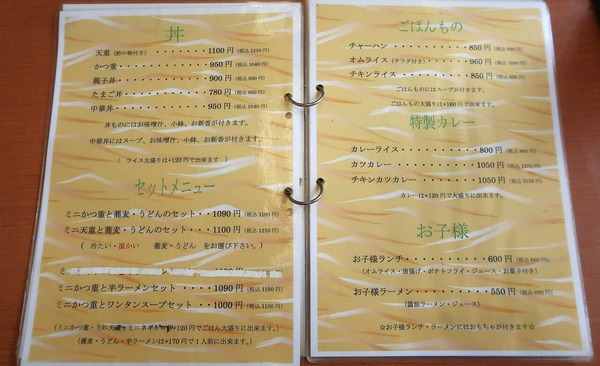 丼
天重(酢の物付き)・・・・・1100円(税込1210円)
かつ重・・・・・・・・・950円(税込1040円)
親子丼・・・・・・・・・900円(税込990円)
たまご丼・・・・・・・・780円(税込850円)
中華丼・・・・・・・・・950円(税込1040円)
丼ものにはお味噌汁、小鉢、お新香が付きます。
中華丼にはスープ、お味噌汁、小鉢、お新香が付きます。
( ライス大盛りは+120円で出来ます )
セットメニュー
ミニかつ重と蕎麦・うどんのセット・・1090円
ミニ天重と蕎麦・うどんのセット・・1100円
( 冷たい・温かい 蕎麦・うどん をお選び下さい。)
ミニかつ重と半ラーメンセット・・・1090円
ミニかつ重とワンタンスープセット・・1000円
+120円でごはん大盛りに出来ます。)
(蕎麦・うどん・半ラーメンは+170円で1人前に出来ます。)
ごはんもの
チャーハン・・・・・・・・・850円
オムライス(サラダ付き)・・・・960円
チキンライス・・・・・・・・850円
ごはんものにはスープが付きます。
ごはんもの大盛りは+160円で出来ます。
特製カレー
カレーライス・・・・・・・・800円
カツカレー・・・・・・・・・1050円
チキンカツカレー・・・・・・1050円
カレーは+120円で大盛りに出来ます。
お子様
お子様ランチ・・・・・・・・600円
(オムライス・唐揚げ・ポテトフライ・ジュース・お菓子付き)
お子様ラーメン・・・・・・・550円
(醤油ラーメン・ジュース)
☆お子様ランチ・ラーメンにはおもちゃが付きます☆